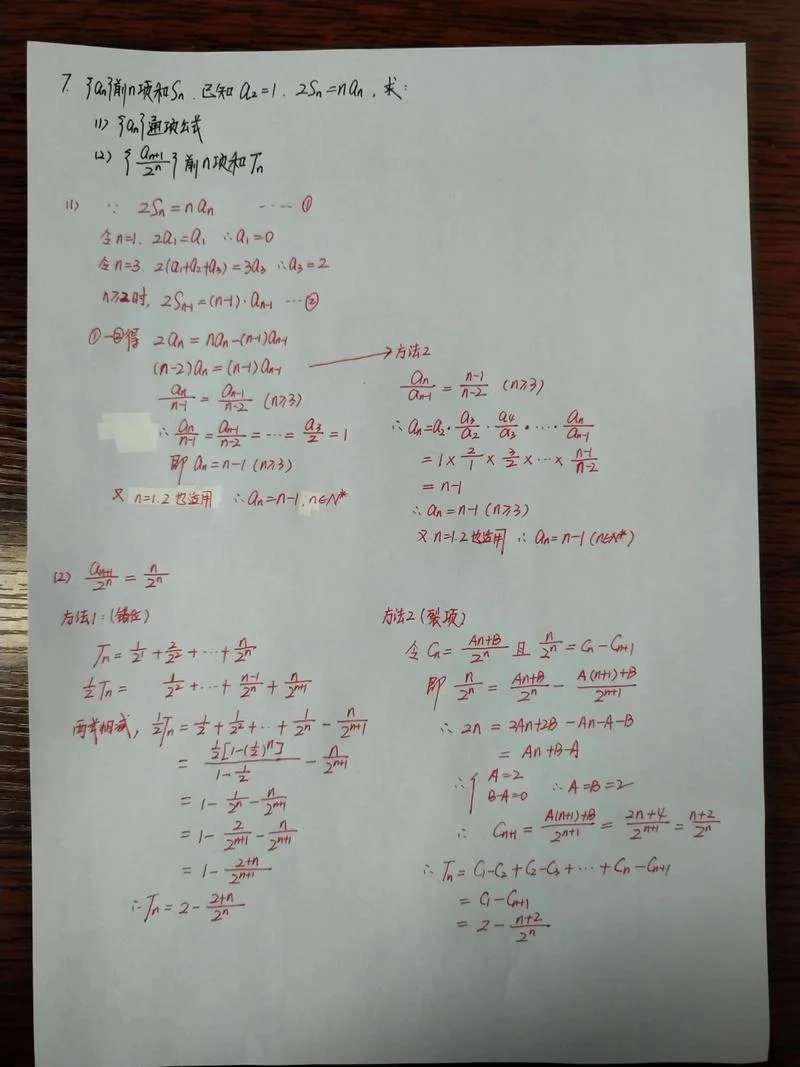 7. {an}前n项和Sn. 已知 a₂=1. 2Sn=nan, 求:
(1) {an}通项公式
(2) {a_{n+1}/2^n} 前n项和Tn
(1) ∵ 2Sn=nan ······①
令n=1. 2a₁=a₁ ∴a₁=0
令n=3. 2(a₁+a₂+a₃)=3a₃ ∴a₃=2
n≥2时, 2S_{n-1}=(n-1)·a_{n-1} ···②
①-②得 2an=nan-(n-1)a_{n-1}
(n-2)an=(n-1)a_{n-1}
an/(n-1)=a_{n-1}/(n-2) (n≥3)
∴ an/(n-1)=a_{n-1}/(n-2)=···=a₃/2=1
即 an=n-1 (n≥3)
又 n=1.2也适用 ∴an=n-1, n∈N*
方法2
an/a_{n-1}=(n-1)/(n-2) (n≥3)
∴an=a₂·a₃/a₂·a₄/a₃·····an/a_{n-1}
=1×2/1×3/2×···×(n-1)/(n-2)
=n-1
∴an=n-1 (n≥3)
又n=1.2也适用 ∴an=n-1(n∈N*)
(2) a_{n+1}/2^n=n/2^n
方法1:(错位)
Tn=1/2^1+2/2^2+···+n/2^n
1/2Tn= 1/2^2+···+(n-1)/2^n+n/2^{n+1}
两式相减, 1/2Tn=1/2+1/2^2+···+1/2^n-n/2^{n+1}
=1/2[1-(1/2)^n]/(1-1/2)-n/2^{n+1}
=1-1/2^n-n/2^{n+1}
=1-2/2^{n+1}-n/2^{n+1}
=1-(2+n)/2^{n+1}
∴Tn=2-(2+n)/2^n
方法2(裂项)
令Cn=(An+B)/2^n 且 n/2^n=Cn-C_{n+1}
即 n/2^n=(An+B)/2^n-(A(n+1)+B)/2^{n+1}
∴2n=2An+2B-An-A-B
=An+B-A
∴{A=2
B-A=0 ∴A=B=2
∴ C_{n+1}=(A(n+1)+B)/2^{n+1}=(2n+4)/2^{n+1}=(n+2)/2^n
∴Tn=C₁-C₂+C₂-C₃+···+Cn-C_{n+1}
=C₁-C_{n+1}
=2-(n+2)/2^n